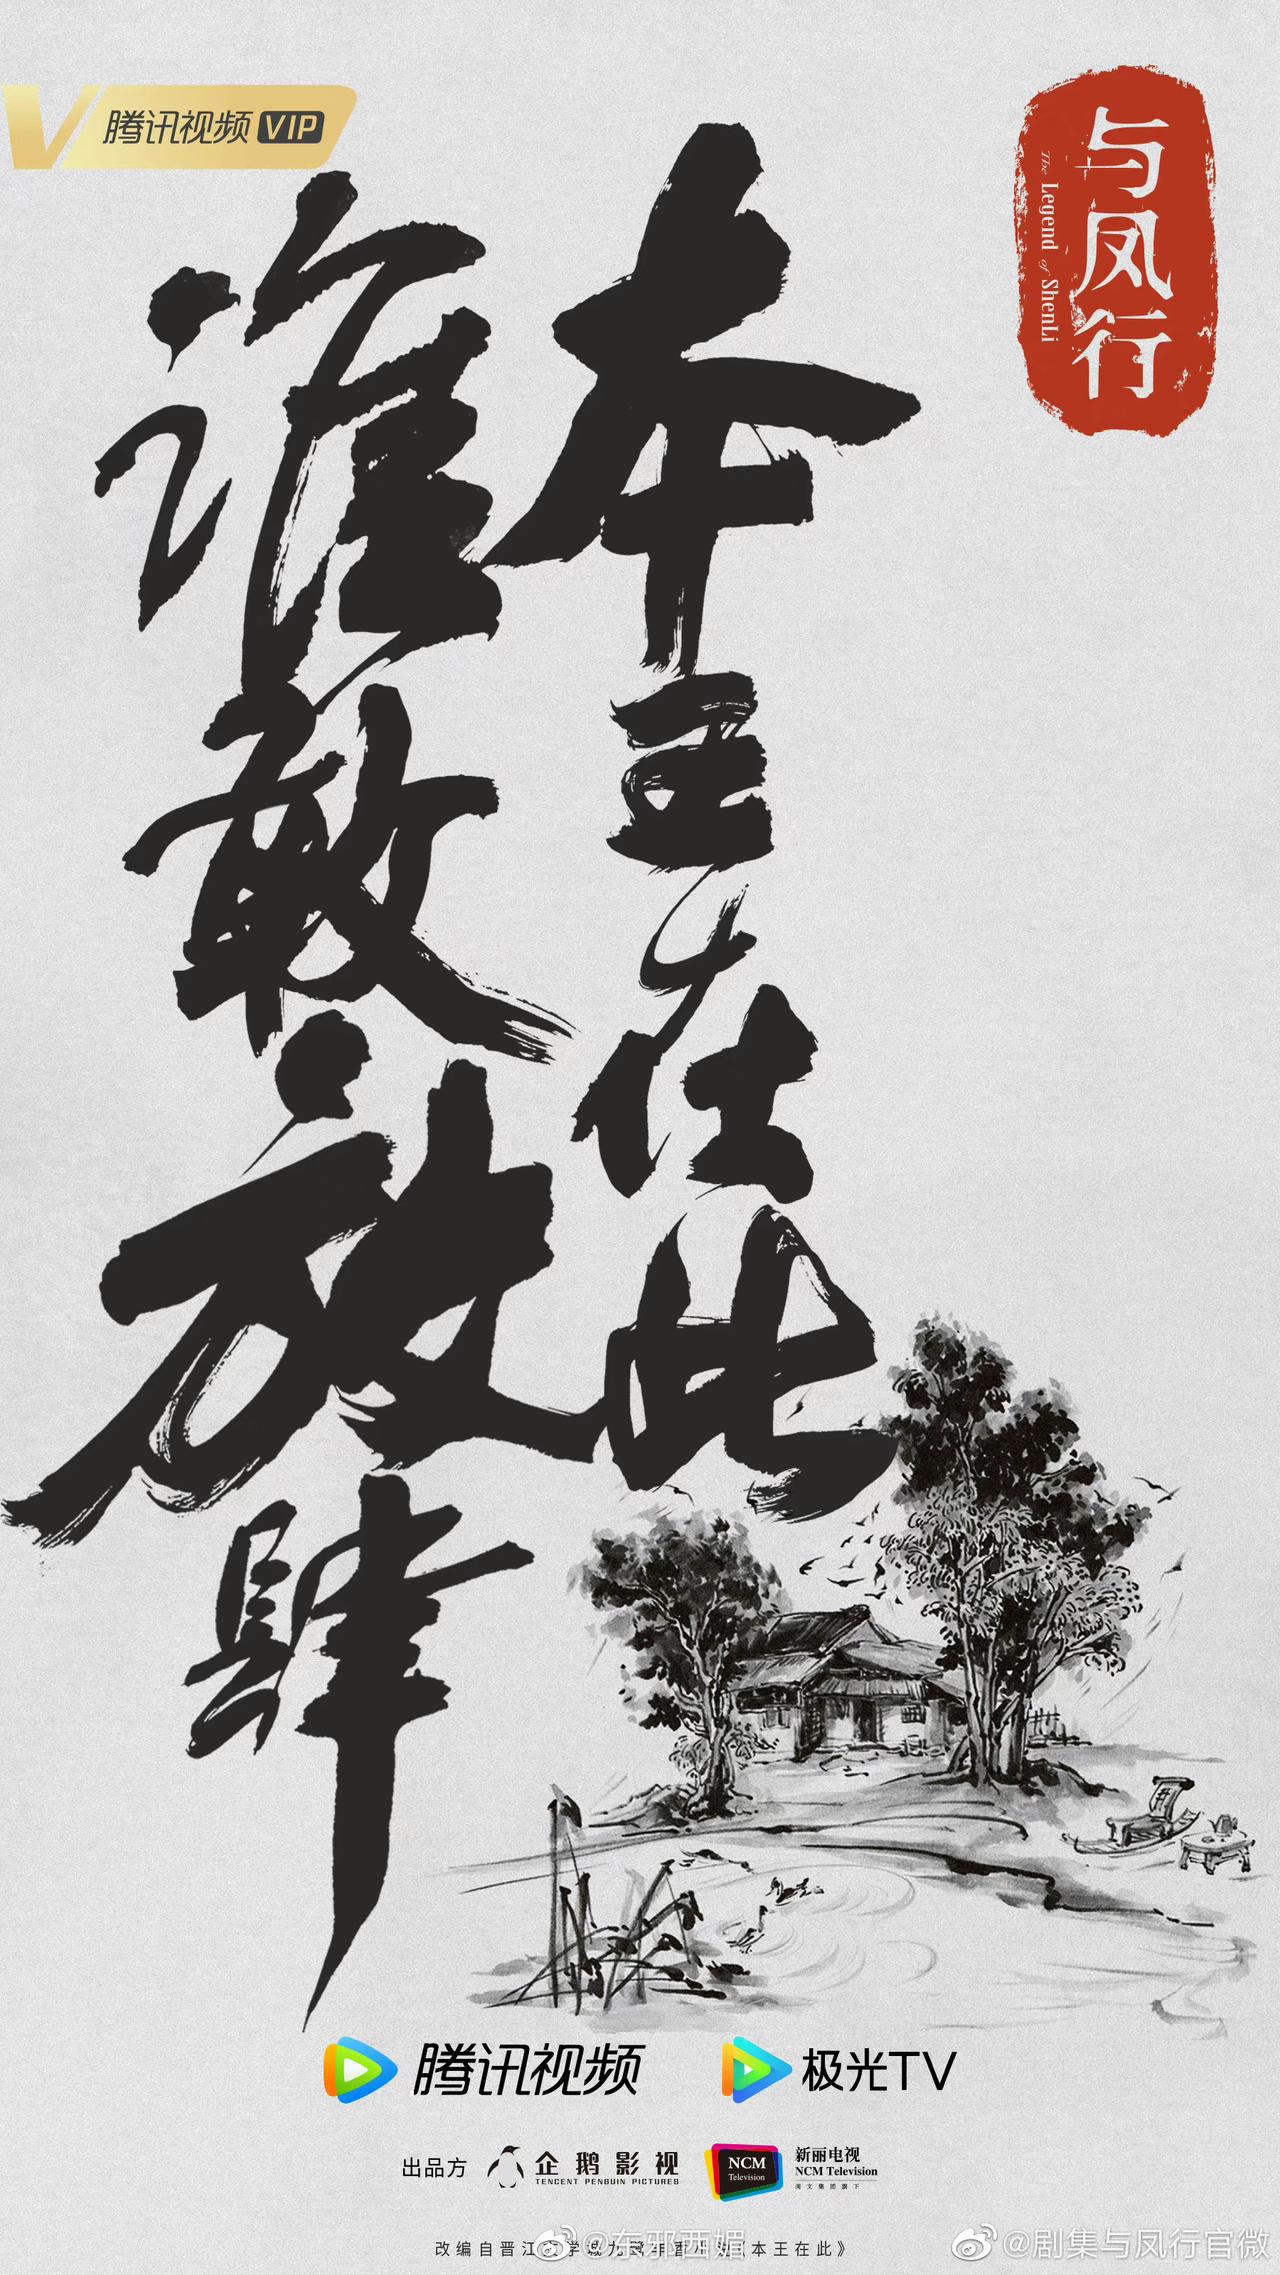 腾讯视频 VIP
与凤行
The Legend of ShenLi
本王在此
谁敢放肆
腾讯视频
极光TV
出品方
企鹅影视
TENCENT PENGUIN PICTURES
NCM
Television
新丽电视
NCM Television
阅文集团旗下
改编自晋江文学城九鹭非香小说《本王在此》
@东邪西媚
@剧集与凤行官微